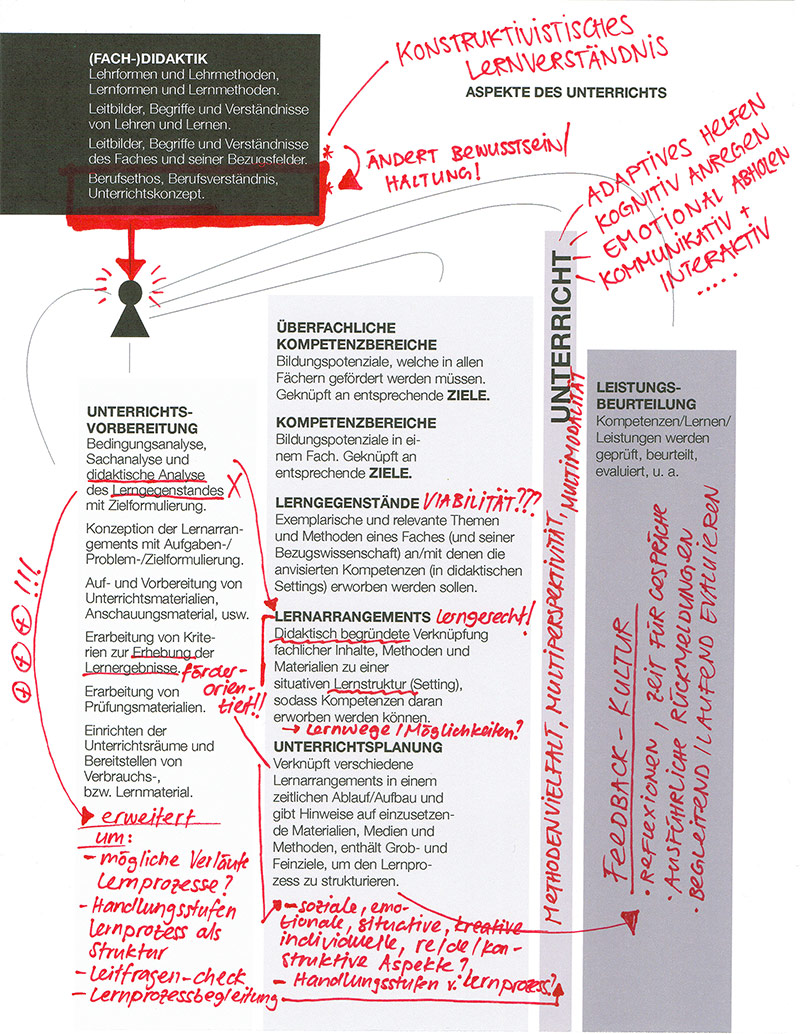 (FACH-)DIDAKTIK
Lehrformen und Lehrmethoden,
Lernformen und Lernmethoden.
Leitbilder, Begriffe und Verständnisse
von Lehren und Lernen.
Leitbilder, Begriffe und Verständnisse
des Faches und seiner Bezugsfelder.
Berufsethos, Berufsverständnis,
Unterrichtskonzept.
* KONSTRUKTIVISTISCHES
LERNVERSTÄNDNIS
ASPEKTE DES UNTERRICHTS
* ÄNDERT BEWUSSTSEIN/
HALTUNG!
ADAPTIVES HELFEN
KOGNITIV ANREGEN
EMOTIONAL ABHOLEN
KOMMUNIKATIV +
INTERAKTIV
.....
UNTERRICHTS-
VORBEREITUNG
Bedingungsanalyse,
Sachanalyse und
didaktische Analyse
des Lerngegenstandes X
mit Zielformulierung.
Konzeption der Lernarran-
gements mit Aufgaben-/
Problem-/Zielformulierung.
Auf- und Vorbereitung von
Unterrichtsmaterialien,
Anschauungsmaterial, usw.
Erarbeitung von Krite-
rien zur Erhebung der
Lernergebnisse. förder-
orien-
tiert!!
Erarbeitung von
Prüfungsmaterialien.
Einrichten der
Unterrichtsräume und
Bereitstellen von
Verbrauchs-,
bzw. Lernmaterial.
+++!!!
erweitert
um:
- mögliche Verläufe
Lernprozesse?
- Handlungsstufen
Lernprozess als
Struktur
- Leitfragen-check
- Lernprozessbegleitung
ÜBERFACHLICHE
KOMPETENZBEREICHE
Bildungspotenziale, welche in allen
Fächern gefördert werden müssen.
Geknüpft an entsprechende ZIELE.
KOMPETENZBEREICHE
Bildungspotenziale in ei-
nem Fach. Geknüpft an
entsprechende ZIELE.
LERNGEGENSTÄNDE VIABILITÄT???
Exemplarische und relevante Themen
und Methoden eines Faches (und seiner
Bezugswissenschaft) an/mit denen die
anvisierten Kompetenzen (in didaktischen
Settings) erworben werden sollen.
LERNARRANGEMENTS lerngerecht!
Didaktisch begründete Verknüpfung
fachlicher Inhalte, Methoden und
Materialien zu einer
situativen Lernstruktur (Setting),
sodass Kompetenzen daran
erworben werden können.
→ Lernwege/Möglichkeiten?
UNTERRICHTSPLANUNG
Verknüpft verschiedene
Lernarrangements in einem
zeitlichen Ablauf/Aufbau und
gibt Hinweise auf einzusetzen-
de Materialien, Medien und
Methoden, enthält Grob- und
Feinziele, um den Lernpro-
zess zu strukturieren.
- soziale, emo-
tionale, situative, kreative
individuelle, re/de/kon-
struktive Aspekte?
- Handlungsstufen v. Lernprozess?
UNTERRICHT
METHODENVIELFALT, MULTIPERSPEKTIVITÄT, MULTIMODALITÄT
LEISTUNGS-
BEURTEILUNG
Kompetenzen/Lernen/
Leistungen werden
geprüft, beurteilt,
evaluiert, u. a.
FEEDBACK-KULTUR
• REFLEXIONEN, ZEIT FÜR GESPRÄCHE
• AUSFÜHRLICHE RÜCKMELDUNGEN
• BEGLEITEND/LAUFEND EVALUIEREN